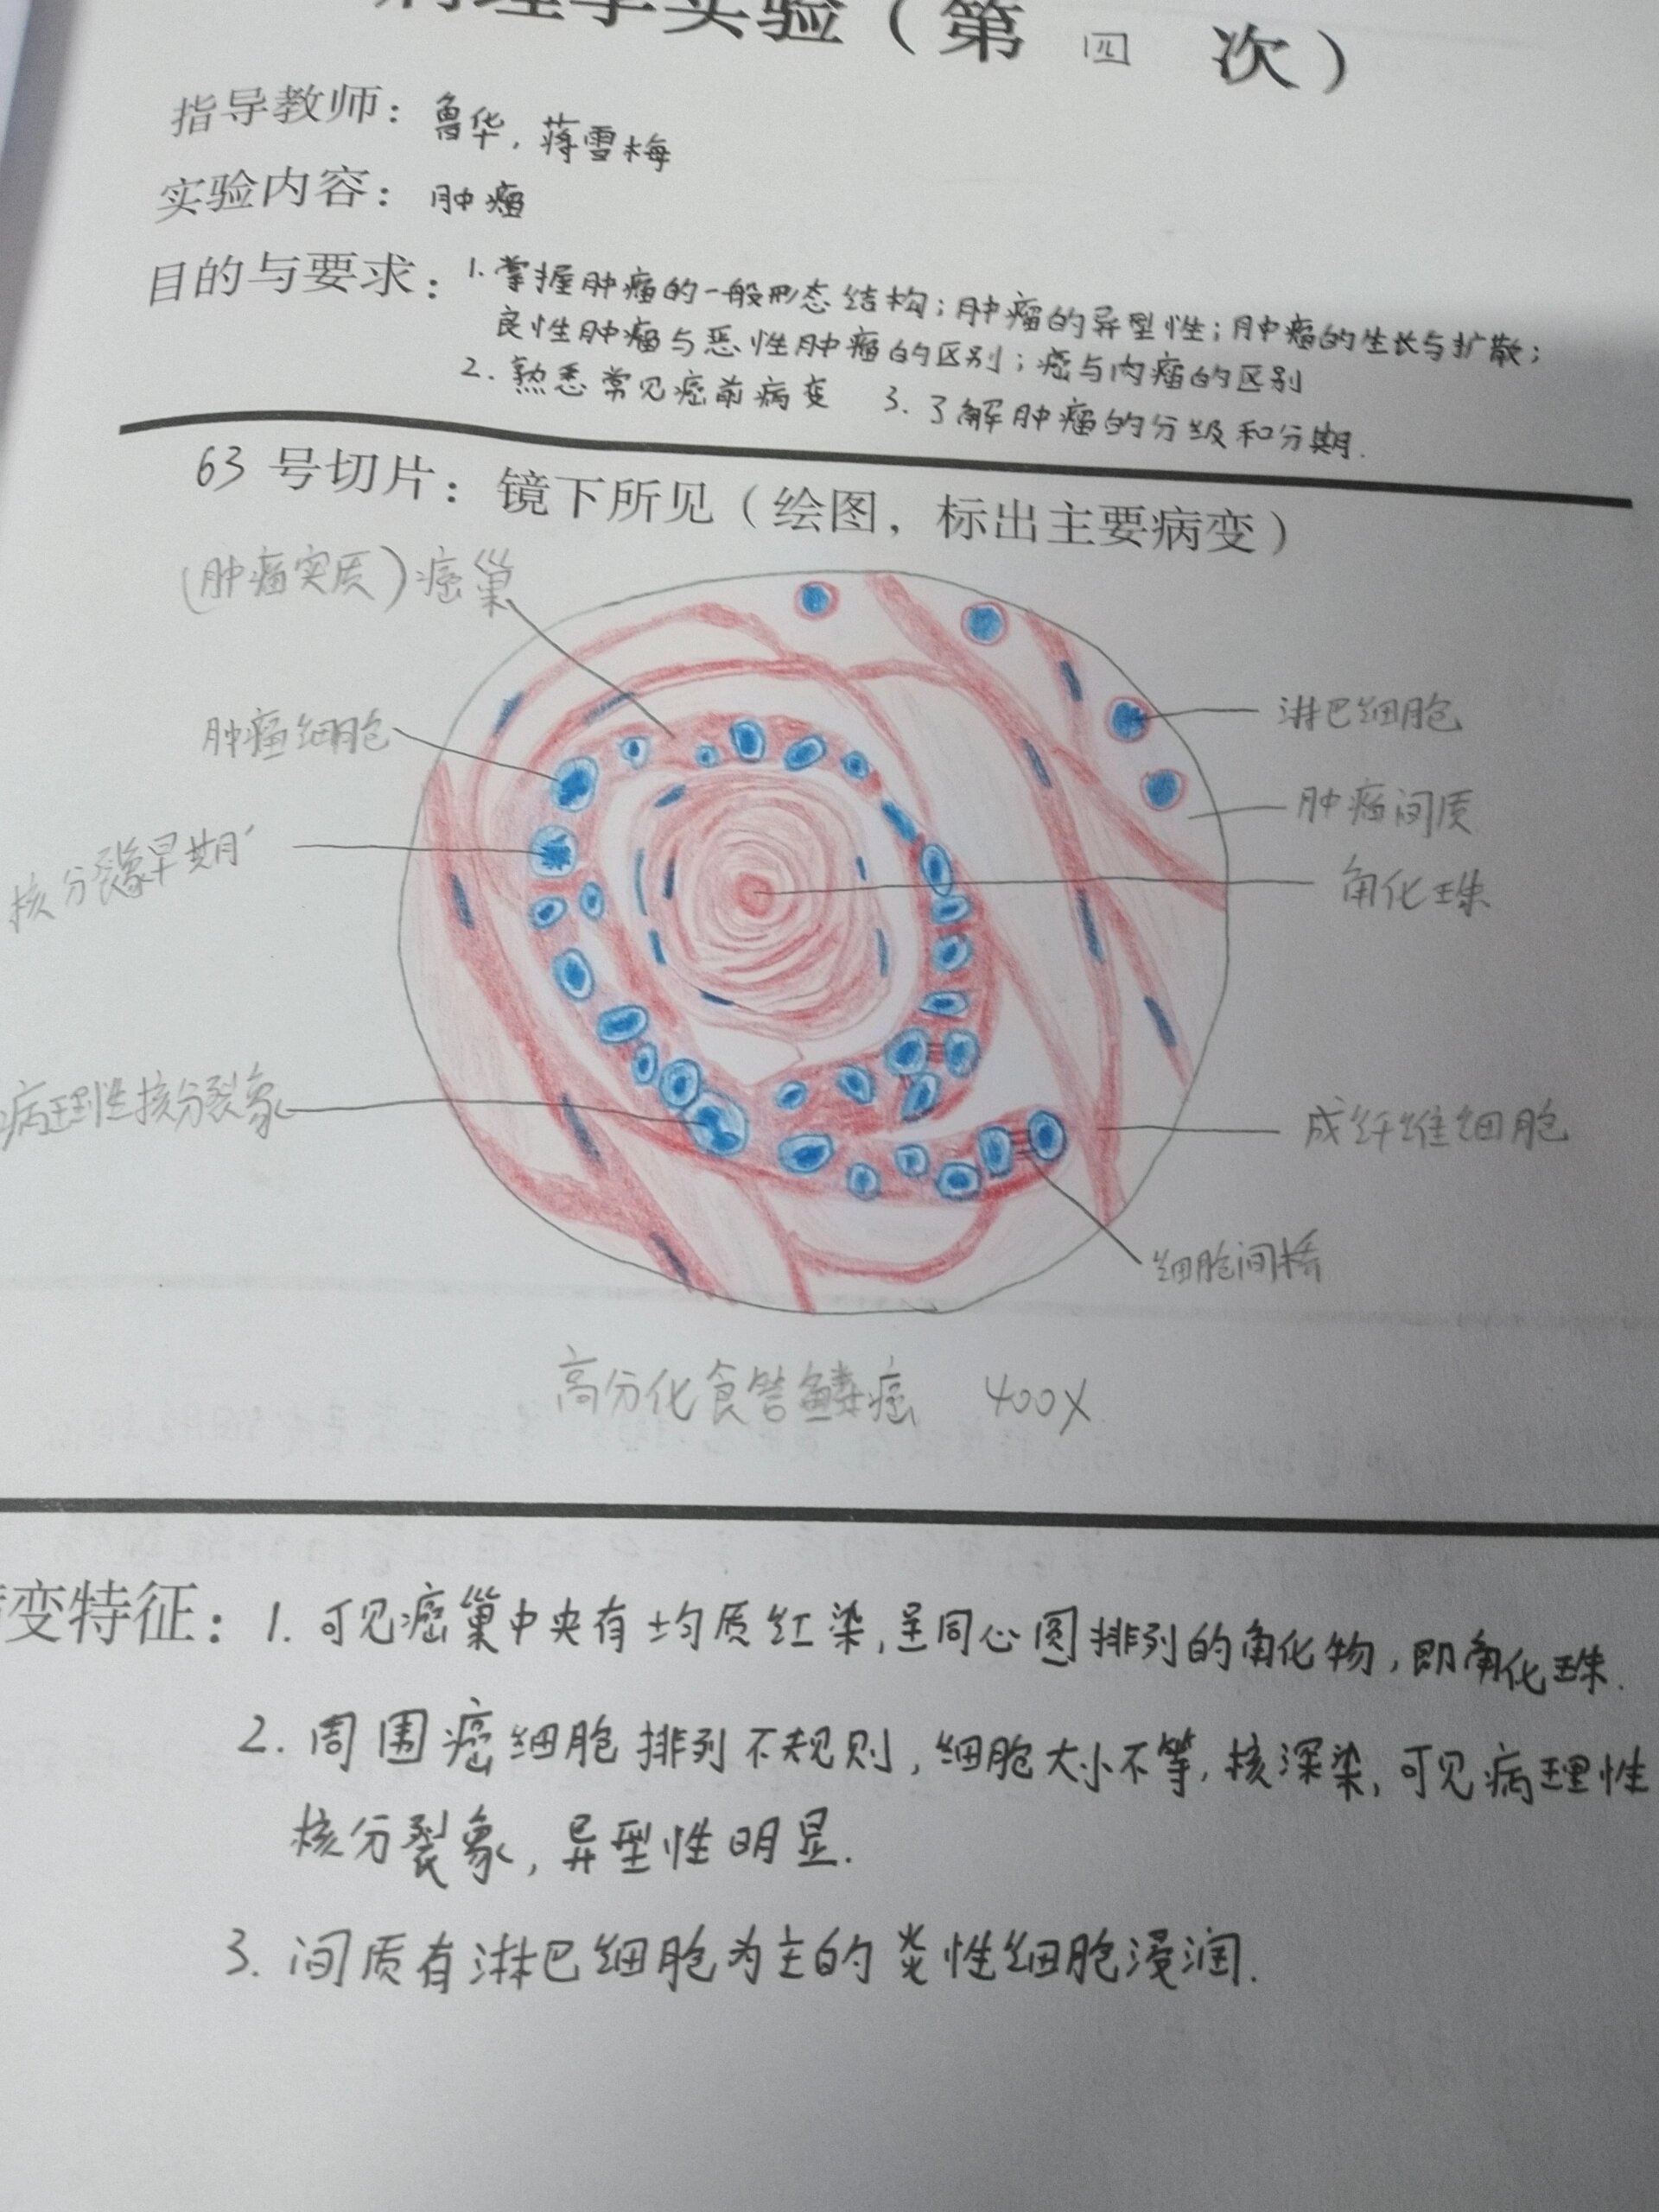 病理学实验（第 四 次）
指导教师：鲁华，蒋雪梅
实验内容：肿瘤
目的与要求：1.掌握肿瘤的一般形态结构；肿瘤的异型性；肿瘤的生长与扩散；
良性肿瘤与恶性肿瘤的区别；癌与肉瘤的区别
2.熟悉常见癌前病变 3.了解肿瘤的分级和分期.
63号切片：镜下所见（绘图，标出主要病变）
(肿瘤实质)癌巢
肿瘤细胞
淋巴细胞
肿瘤间质
核分裂象早期
角化珠
病理性核分裂象
成纤维细胞
细胞间桥
高分化食管鳞癌 400X
变特征：1.可见癌巢中央有均质红染,呈同心圆排列的角化物,即角化珠.
2.周围癌细胞排列不规则,细胞大小不等,核深染,可见病理性
核分裂象,异型性明显.
3.间质有淋巴细胞为主的炎性细胞浸润.